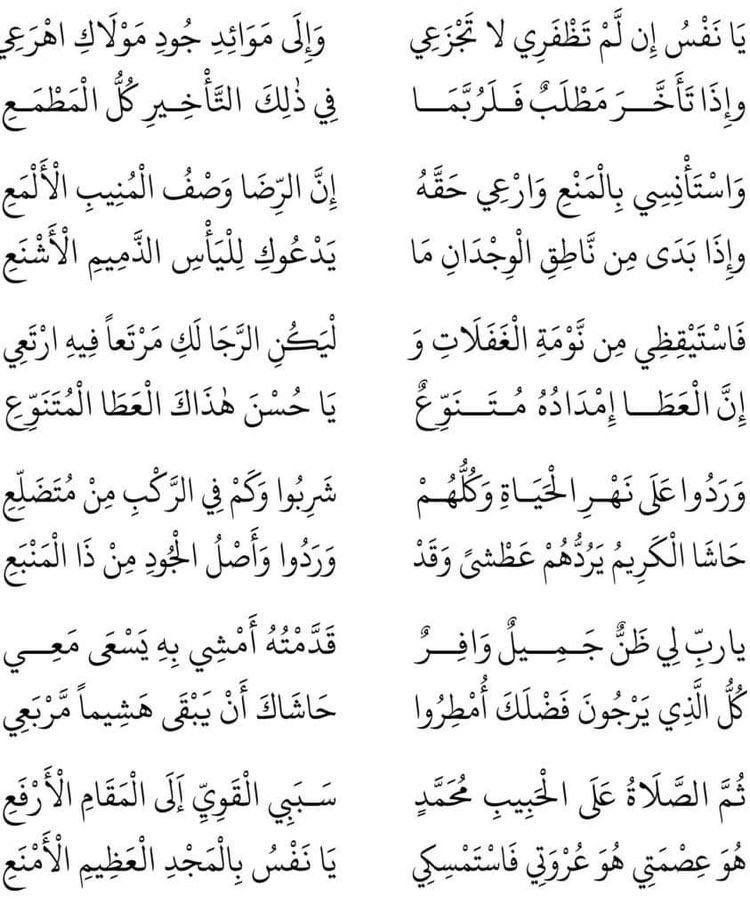 يَا نَفْسُ إِن لَّمْ تَظْفَرِي لا تَجْزَعِي وَإِلَى مَوَائِدِ جُودِ مَوْلَاكِ اهْرَعِي
وإِذَا تَأَخَّـــرَ مَطْلَبٌ فَـلَـرُبَّمَـــا فِي ذٰلِكَ التَّأْخِـيرِ كُلُّ الْمَطْمَـعِ
وَاسْتَأْنِسِي بِالْمَنْعِ وَارْعِي حَقَّهُ إِنَّ الرِّضَا وَصْفُ الْمُنِيبِ الْأَلْمَعِ
وإِذَا بَدَى مِن نَّاطِقِ الْوِجْدَانِ مَا يَدْعُوكِ لِلْيَأْسِ الذَّمِيمِ الْأَشْنَعِ
فَاسْتَيْقِظِي مِن نَّوْمَةِ الْغَفَلَاتِ وَ لْيَكُنِ الرَّجَا لَكِ مَرْتَعاً فِيهِ ارْتَعِي
إِنَّ الْعَطَـــا إِمْدَادُهُ مُـتَـــنَوِّعٌ يَا حُسْنَ هٰذَاكَ الْعَطَا الْمُتَنَوِّعِ
وَرَدُوا عَلَى نَهْـرِ الْحَيَـاةِ وَكُلُّهُـمْ شَرِبُوا وَكَمْ فِي الرَّكْبِ مِنْ مُتَضَلِّعِ
حَاشَا الْكَرِيمُ يَرُدُّهُمْ عَطْشىً وَقَدْ وَرَدُوا وَأَصْلُ الْجُودِ مِنْ ذَا الْمَنْبَعِ
ياربِّ لِي ظَنٌّ جَـمِـــيلٌ وَافِـــرٌ قَدَّمْتُهُ أَمْشِي بِهِ يَسْعَى مَعِـــي
كُلُّ الَّذِي يَرْجُونَ فَضْلَكَ أُمْطِرُوا حَاشَاكَ أَنْ يَبْقَى هَشِيماً مَّرْبَعِي
ثُمَّ الصَّلَاةُ عَلَى الْحَبِيبِ مُحَمَّدٍ سَـبَبِي الْقَوِيِّ إَلَى الْمَقَامِ الْأَرْفَعِ
هُوَ عِصْمَتِي هُوَ عُرْوَتِي فَاسْتَمْسِكِي يَا نَفْسُ بِالْمَجْدِ الْعَظِيمِ الْأَمْنَعِ